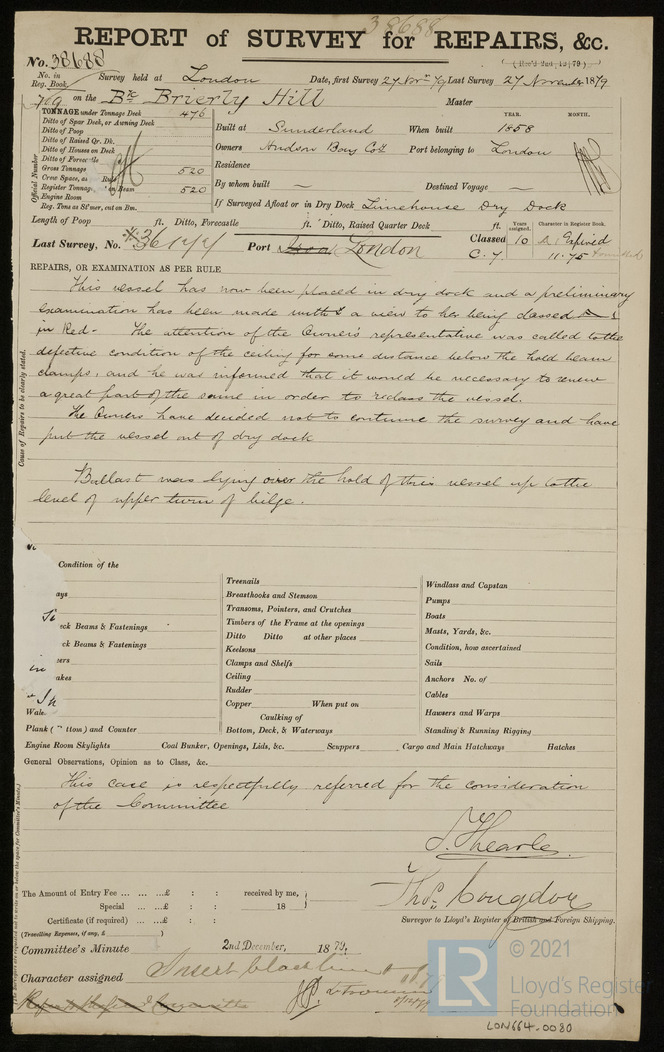 38688
REPORT of SURVEY for REPAIRS, &c.
No. 38688
No. in Reg. Book.
Survey held at London Date, first Survey 27 Last Survey 27 1879
709 on the Bk Brierly Hill Master
TONNAGE under Tonnage Deck 476
Ditto of Spar Deck, or Awning Deck
Ditto of Poop
Ditto of Raised Qr. Dk.
Ditto of Houses on Deck
Ditto of Forecastle
Gross Tonnage 520
Crew Space, as
Register Tonnage 520
Engine Room
Reg. Tons as St'mer, cut on Bm.
Official Number
YEAR. MONTH.
Built at Sunderland When built 1858
Owners Hudson Bay Co Port belonging to London
Residence
By whom built — Destined Voyage —
If Surveyed Afloat or in Dry Dock Limehouse Dry Dock
Length of Poop ft. Ditto, Forecastle ft. Ditto, Raised Quarter Deck ft.
Last Survey, No. Port London
Classed
Years assigned. 10
Character in Register Book. Expired
11.75
REPAIRS, OR EXAMINATION AS PER RULE
This vessel has now been placed in dry dock and a preliminary
examination has been made with a view to her being classed A 1
in Red. The attention of the Owners' representative was called to the
defective condition of the ceiling for some distance below the hold beam
clamps, and he was informed that it would be necessary to renew
a great part of the same in order to reclass the vessel.
The Owners have decided not to continue the survey and have
put the vessel out of dry dock
Ballast was lying over the hold of this vessel up to the
level of upper turn of bilge.
Cause of Repairs to be clearly stated.
Condition of the
eck Beams & Fastenings
eck Beams & Fastenings
Wale
Plank ( ttom) and Counter
Treenails
Breasthooks and Stemson
Transoms, Pointers, and Crutches
Timbers of the Frame at the openings
Ditto Ditto at other places
Keelsons
Clamps and Shelfs
Ceiling
Rudder
Copper When put on
Caulking of
Bottom, Deck, & Waterways
Windlass and Capstan
Pumps
Boats
Masts, Yards, &c.
Condition, how ascertained
Sails
Anchors No. of
Cables
Hawsers and Warps
Standing & Running Rigging
Engine Room Skylights Coal Bunker, Openings, Lids, &c. Scuppers Cargo and Main Hatchways Hatches
General Observations, Opinion as to Class, &c.
This case is respectfully referred for the consideration
of the Committee
The Amount of Entry Fee ... ... ...£ : : received by me,
Special ... ...£ : : 18
Certificate (if required) ...£ : :
(Travelling Expenses, if any, £ )
Thos. Congdon
Surveyor to Lloyd's Register of British and Foreign Shipping.
Committee's Minute 2nd December, 1879.
Character assigned
© 2021
LR
Lloyd's Register
Foundation
LON664-0080